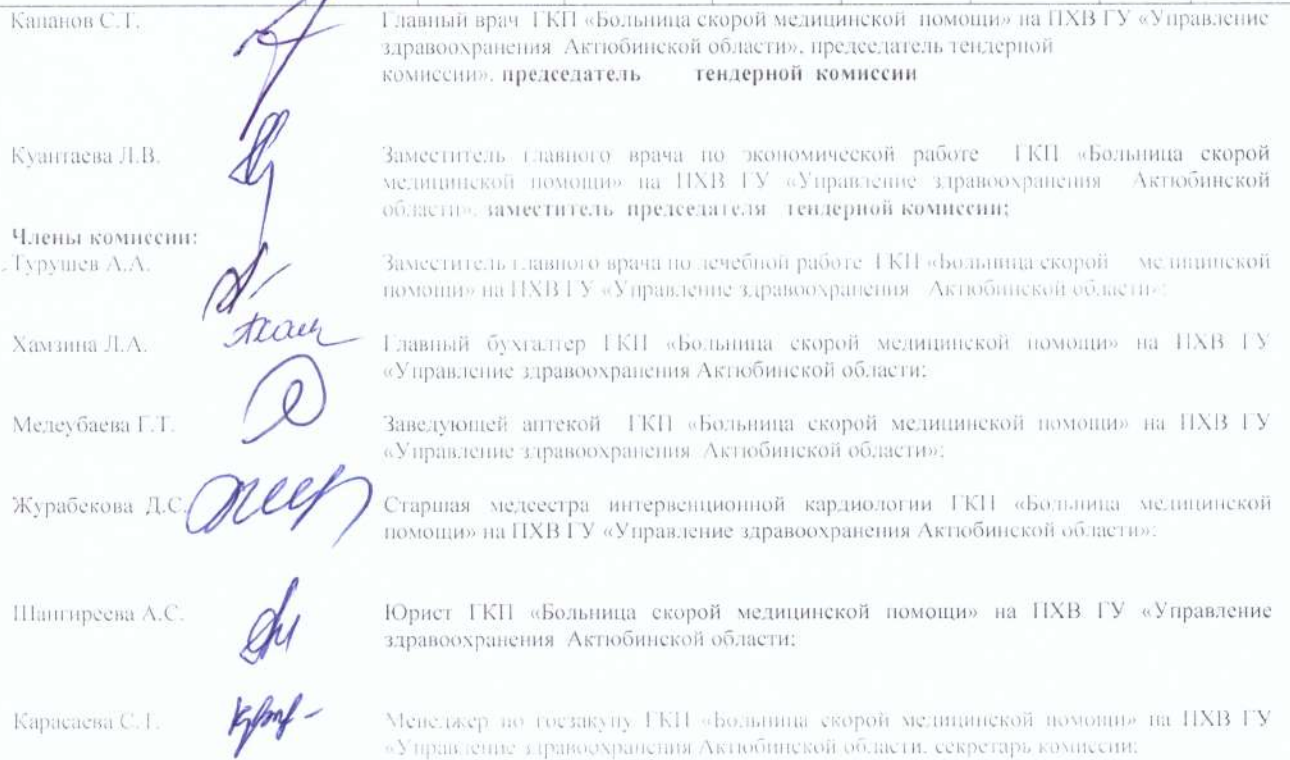 Капанов С.Т. Главный врач ГКП «Больница скорой медицинской помощи» на ПХВ ГУ «Управление
здравоохранения Актюбинской области», председатель тендерной
комиссии», председатель тендерной комиссии
Куантаева Л.В. Заместитель главного врача по экономической работе ГКП «Больница скорой
медицинской помощи» на ПХВ ГУ «Управление здравоохранения Актюбинской
области», заместитель председателя тендерной комиссии;
Члены комиссии:
Турушев А.А. Заместитель главного врача по лечебной работе ГКП «Больница скорой медицинской
помощи» на ПХВ ГУ «Управление здравоохранения Актюбинской области»;
Хамзина Л.А. Главный бухгалтер ГКП «Больница скорой медицинской помощи» на ПХВ ГУ
«Управление здравоохранения Актюбинской области;
Медеубаева Г.Т. Заведующей аптекой ГКП «Больница скорой медицинской помощи» на ПХВ ГУ
«Управление здравоохранения Актюбинской области»;
Журабекова Д.С. Старшая медсестра интервенционной кардиологии ГКП «Больница медицинской
помощи» на ПХВ ГУ «Управление здравоохранения Актюбинской области»;
Шангиреева А.С. Юрист ГКП «Больница скорой медицинской помощи» на ПХВ ГУ «Управление
здравоохранения Актюбинской области;
Карасаева С.Т. Менеджер по госзакупу ГКП «Больница скорой медицинской помощи» на ПХВ ГУ
«Управление здравоохранения Актюбинской области, секретарь комиссии;